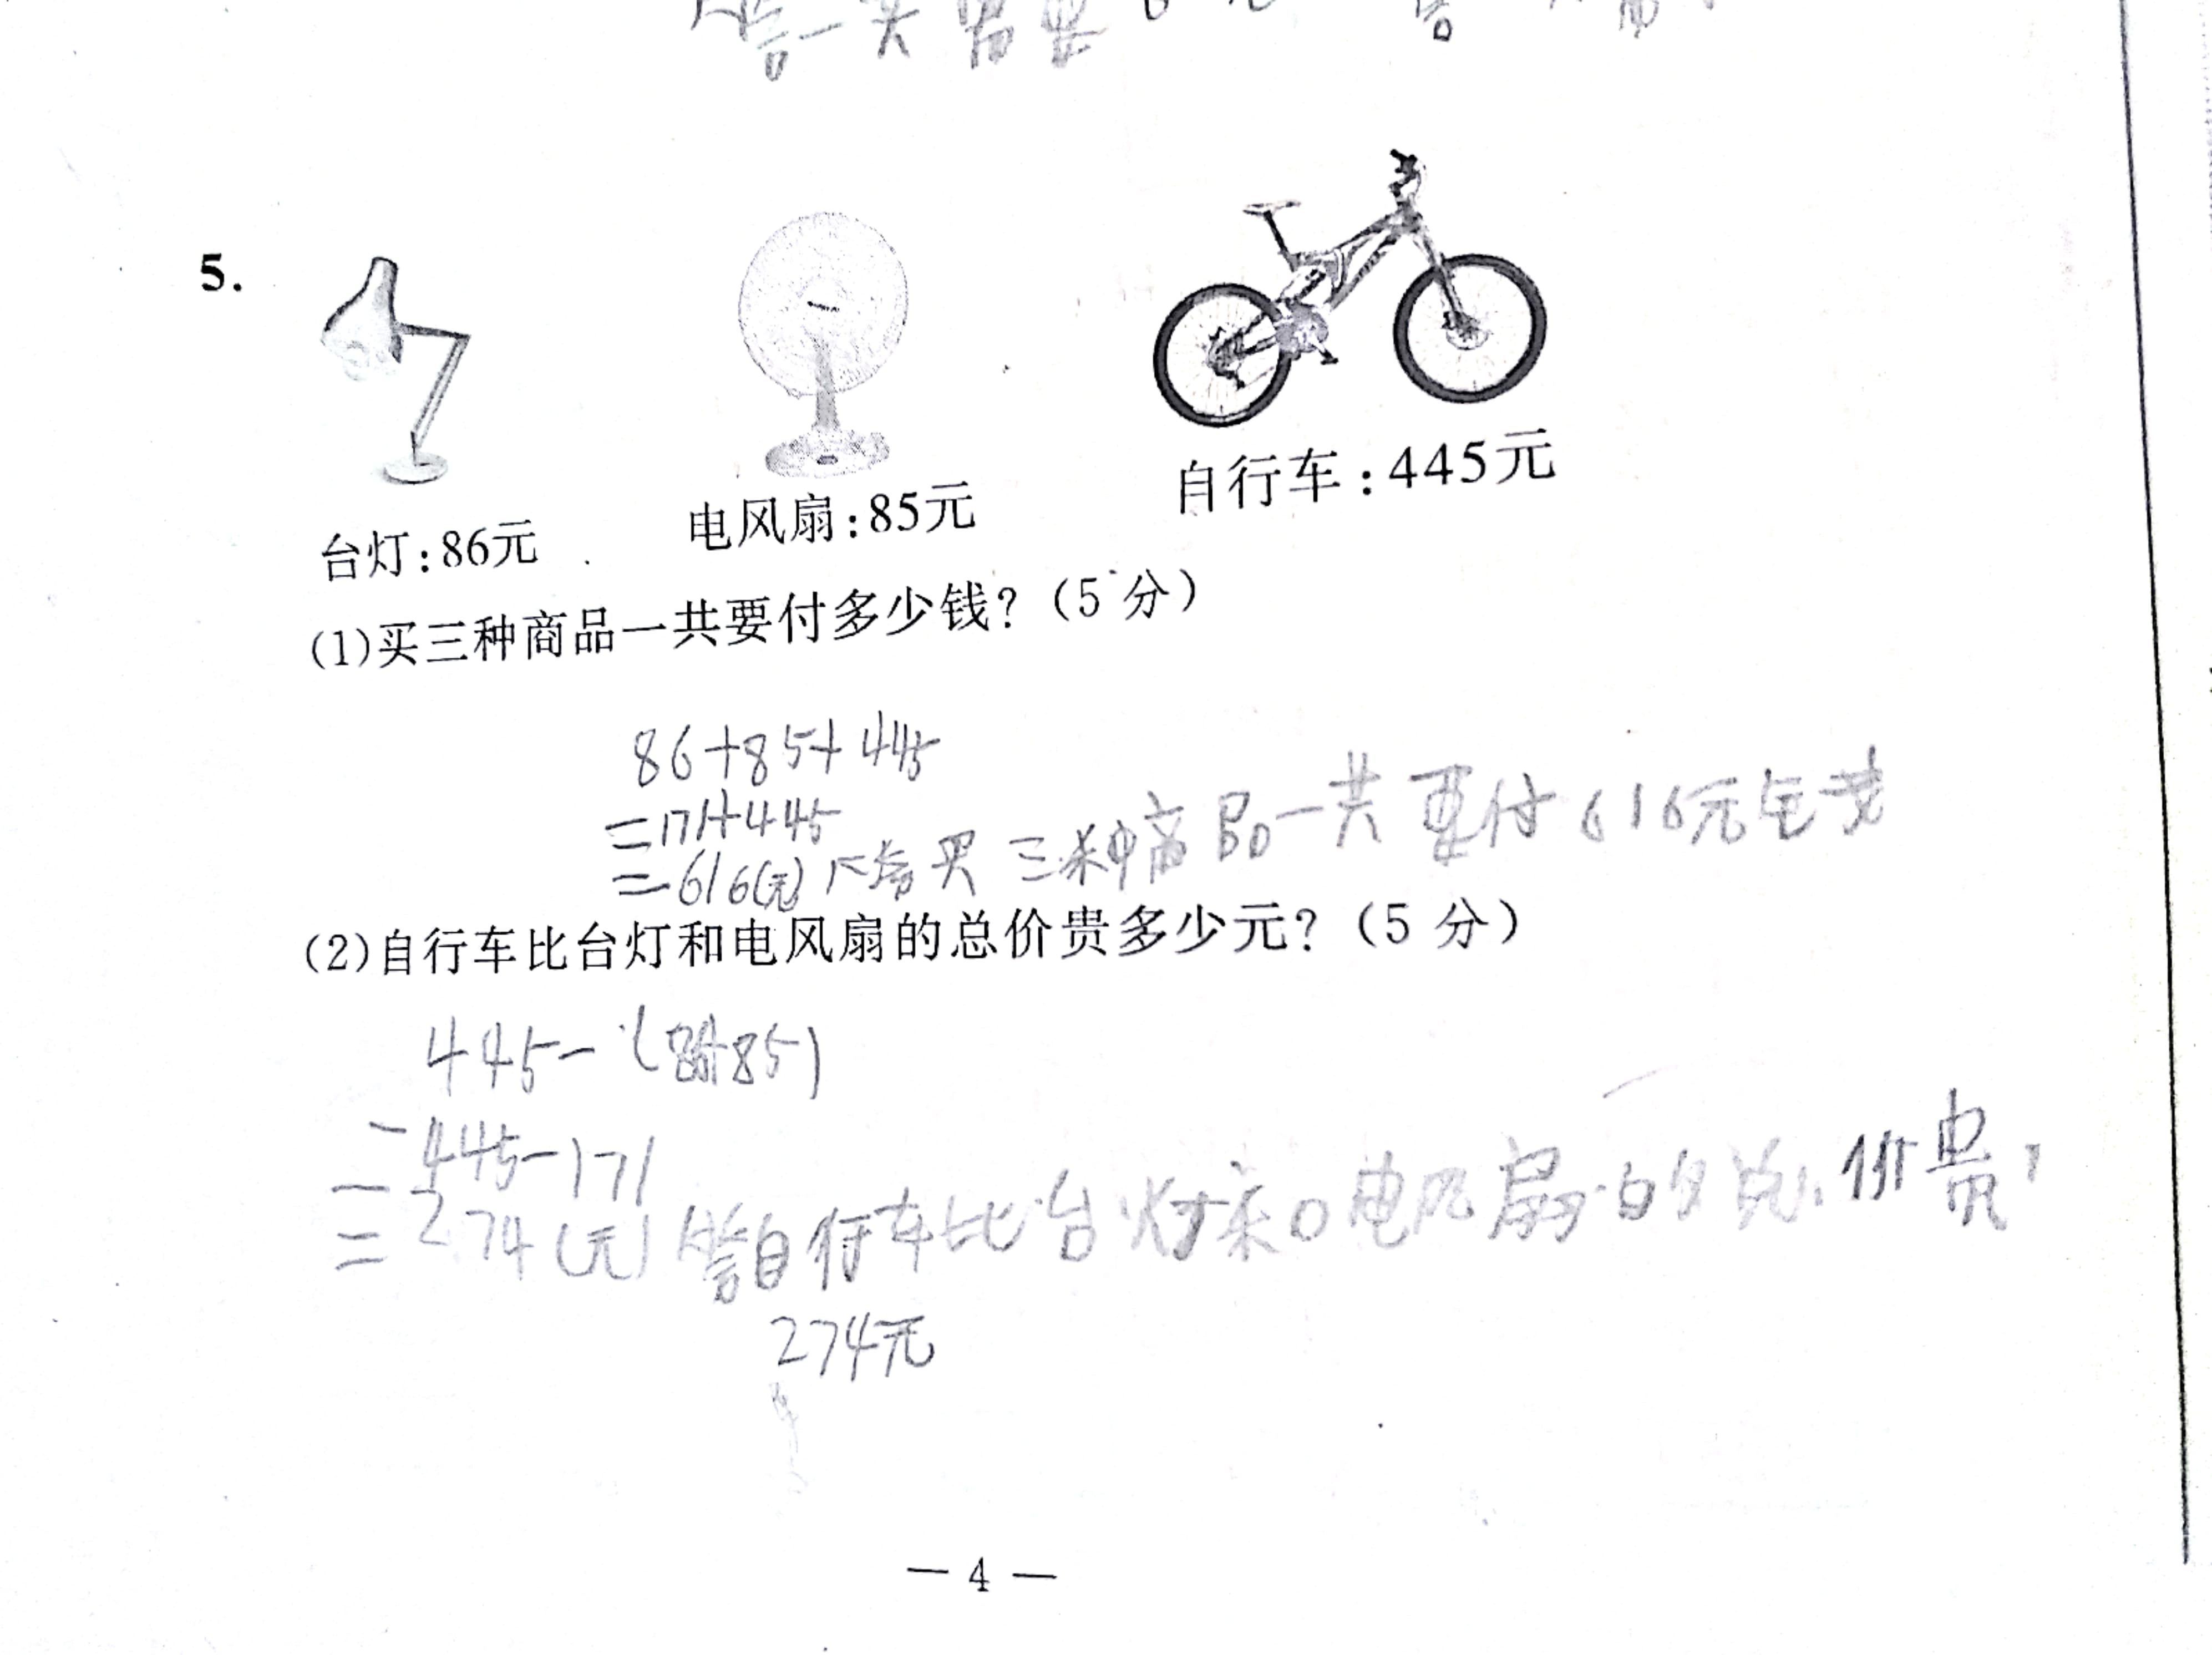 答一共需要
5.
台灯:86元 电风扇:85元 自行车:445元
(1)买三种商品一共要付多少钱?(5分)
86+85+445
=171+445
=616(元) 答买三种商品一共要付616元
(2)自行车比台灯和电风扇的总价贵多少元?(5 分)
445-(86+85)
=445-171
=274(元) 答自行车比台灯和电风扇的总价贵
274元
— 4 —